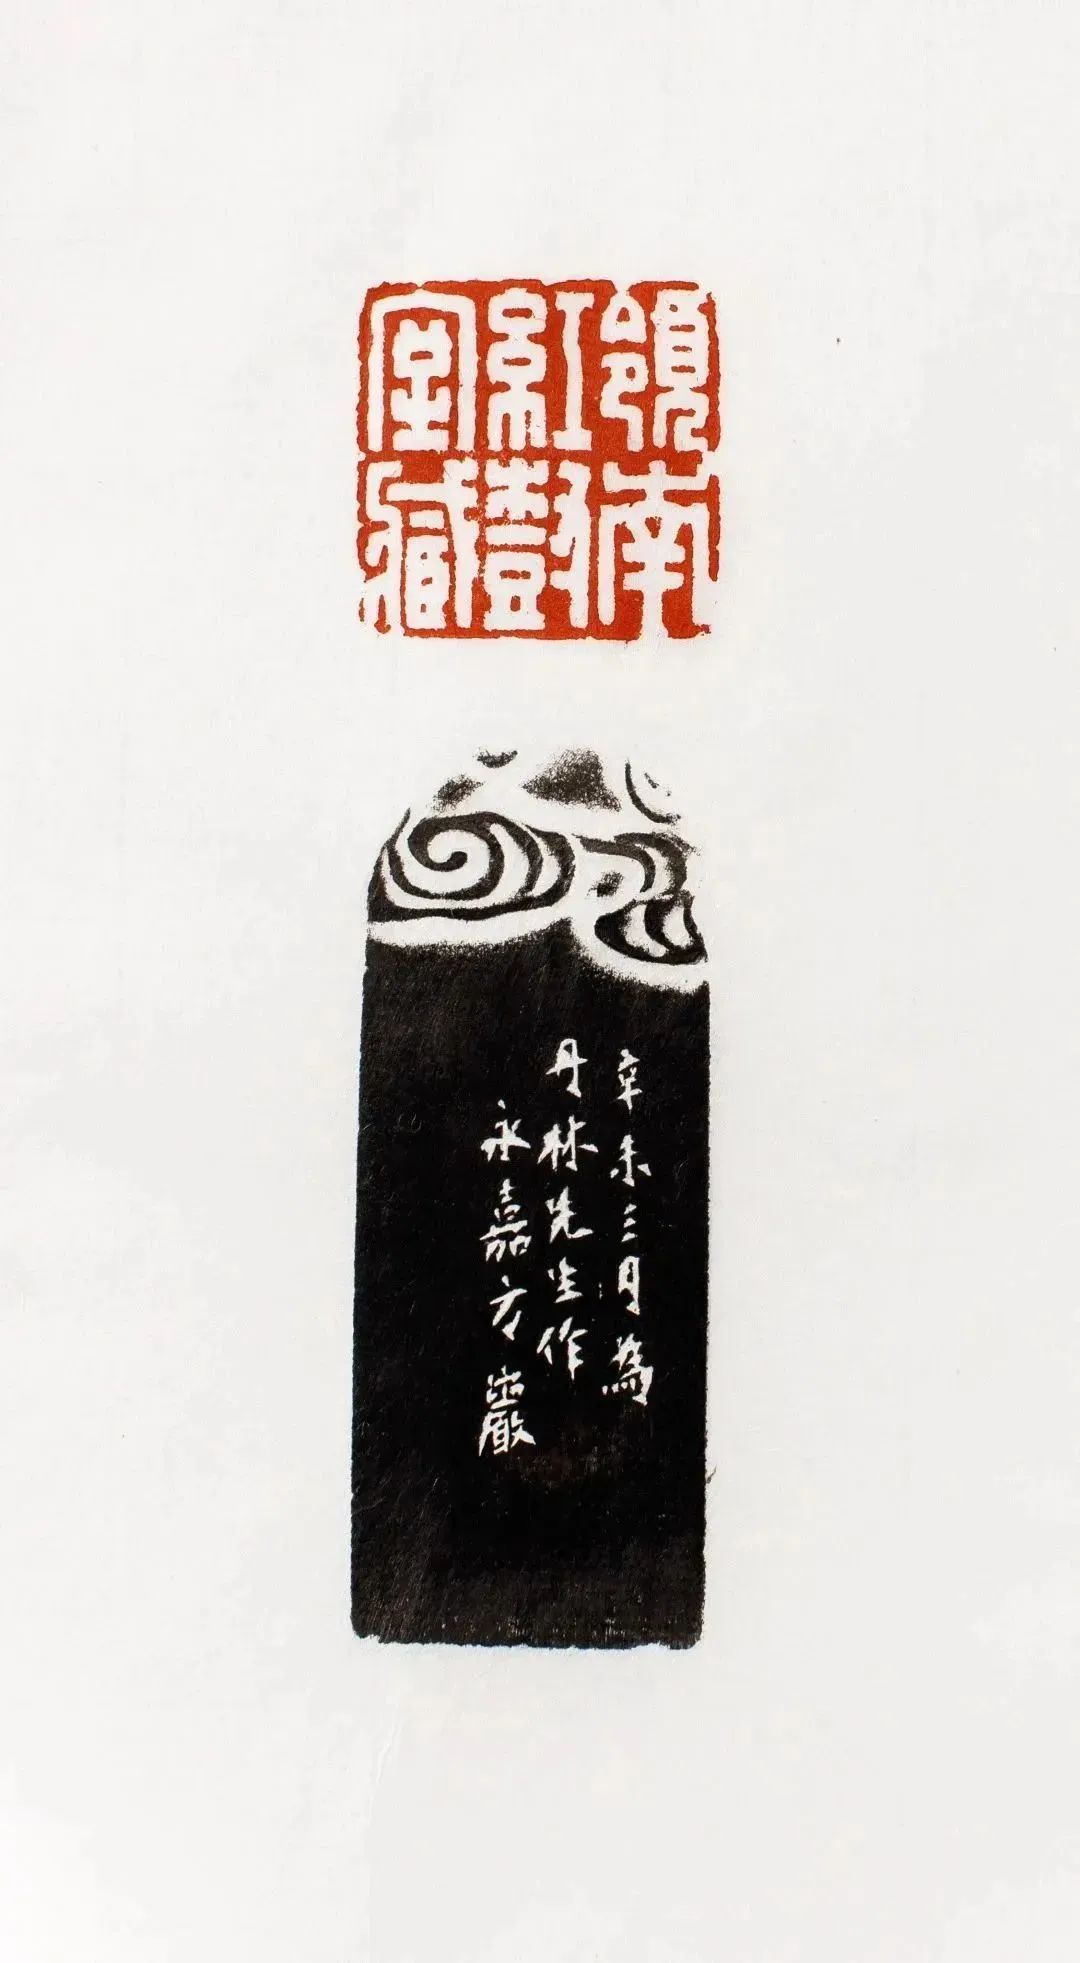 嶺南
紅樹
室藏
辛未三月為
丹林先生作
永嘉方巖